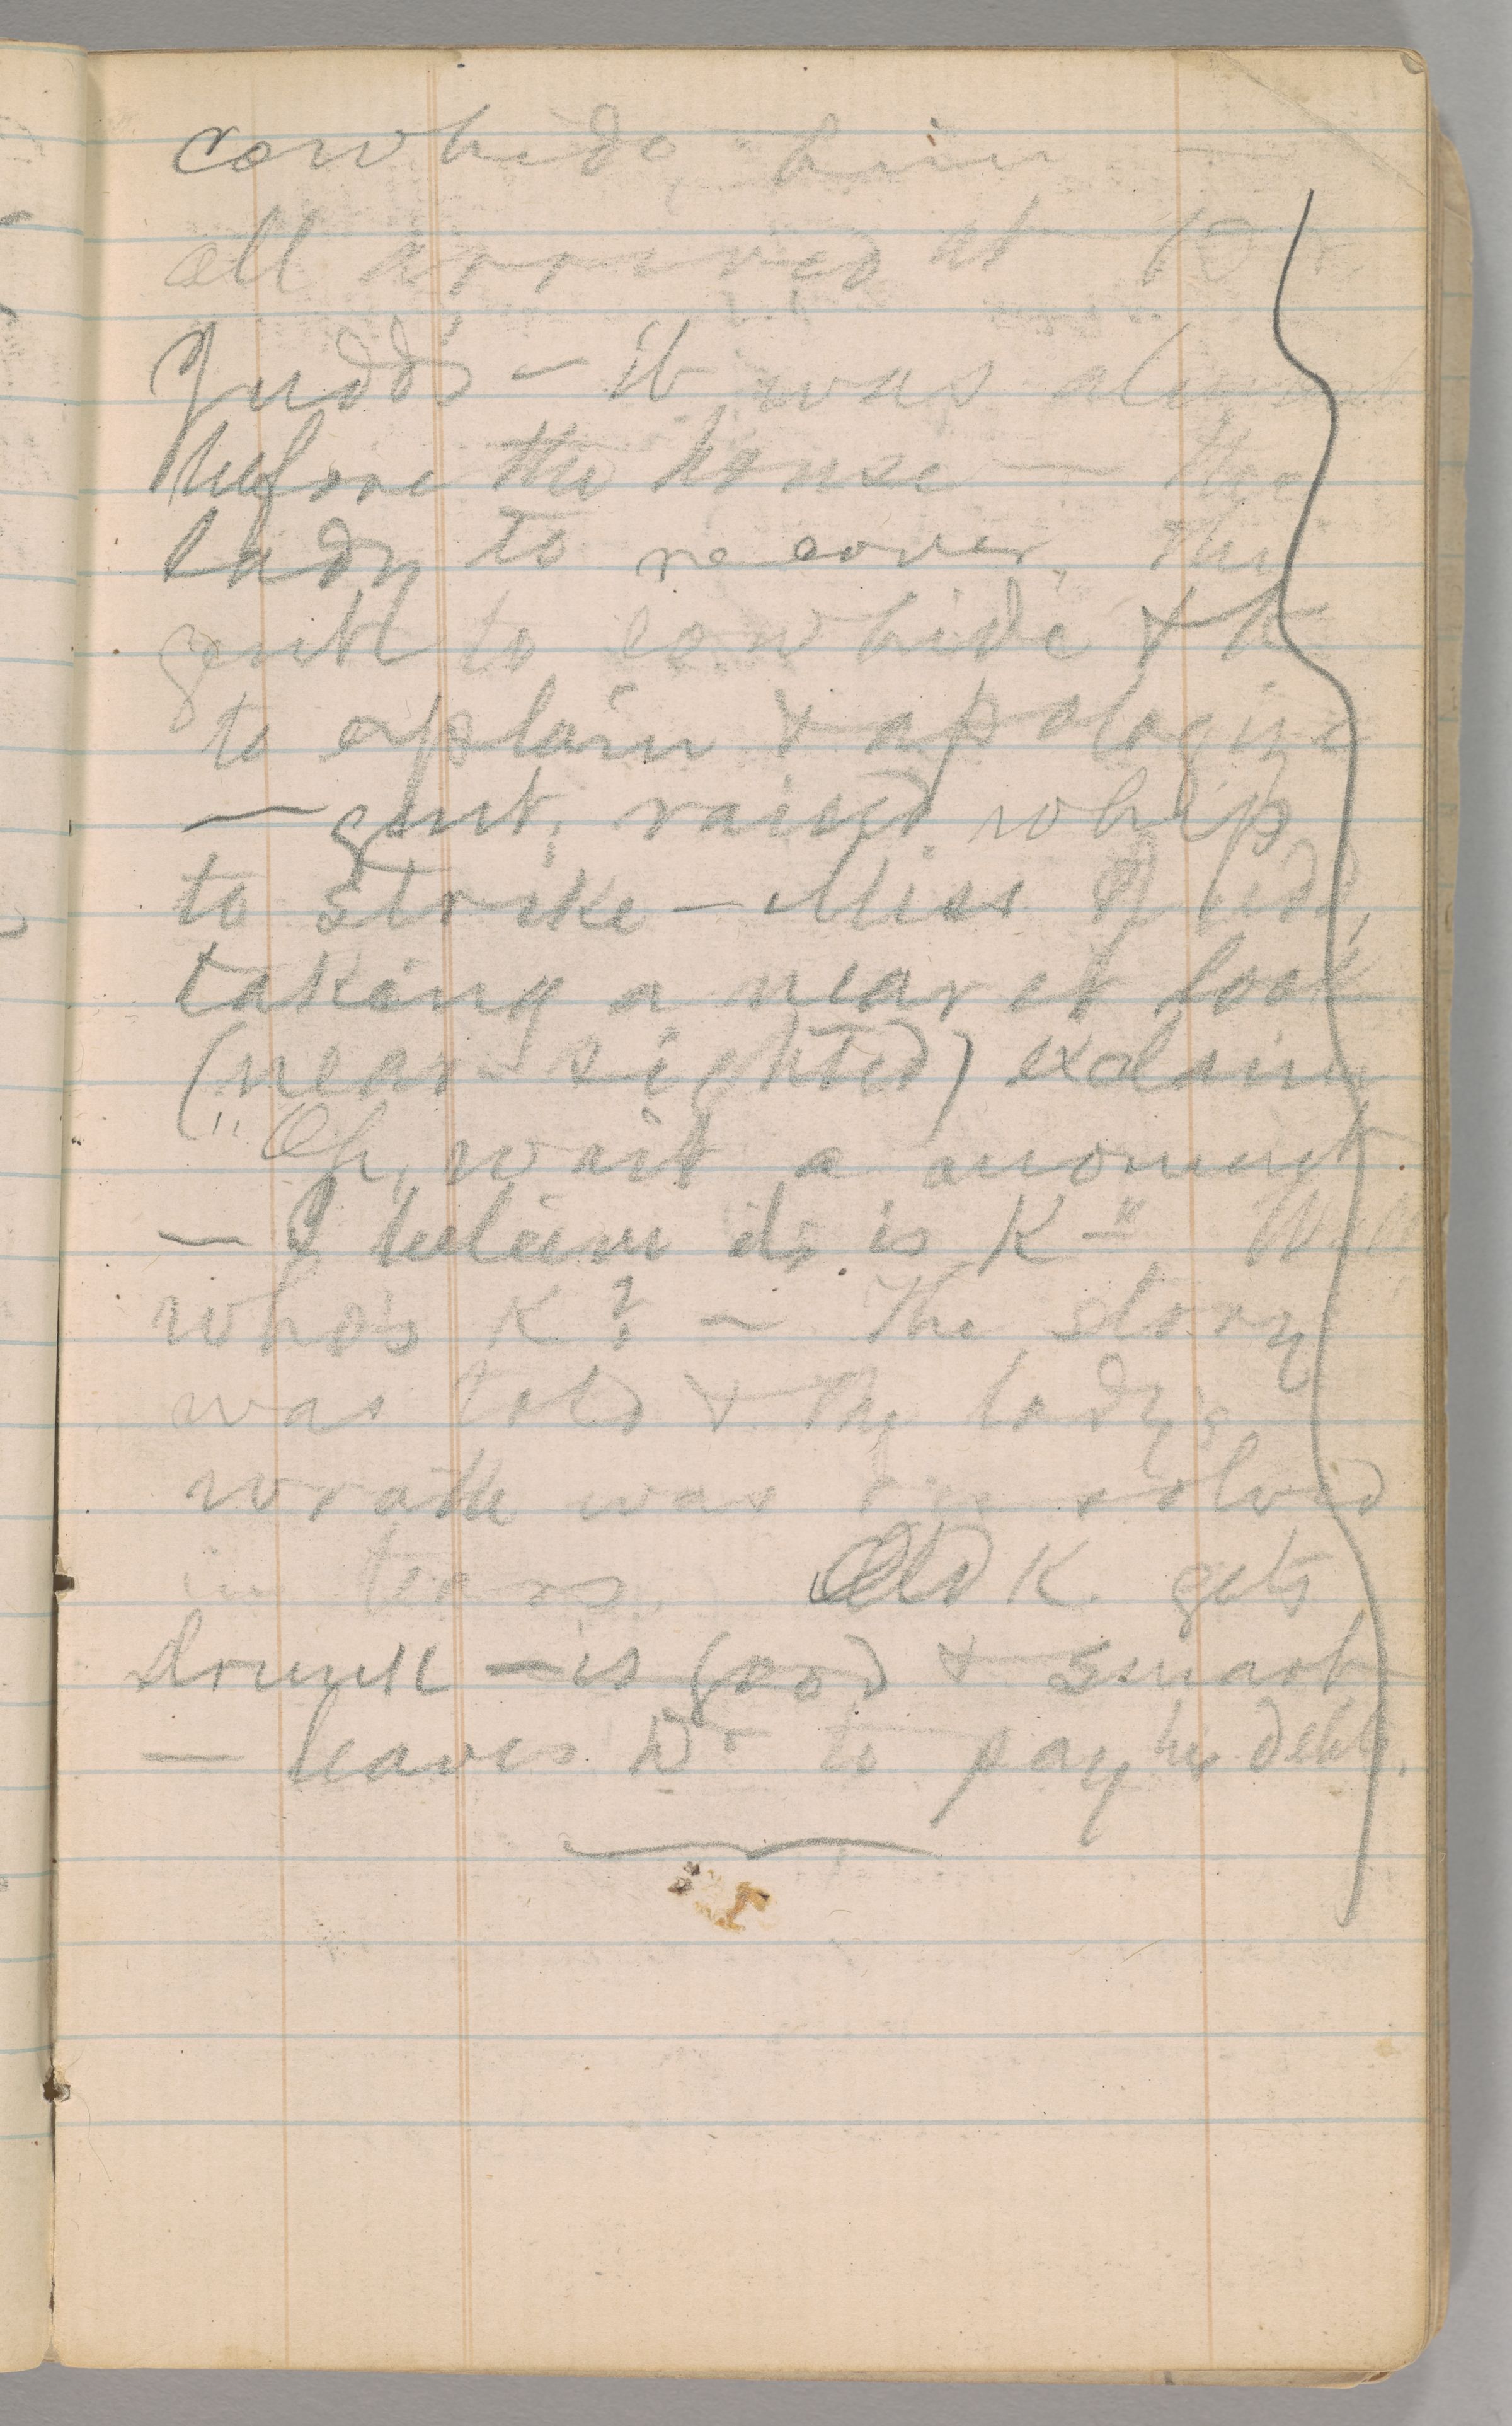 cowhide him —
all arrived at Dr
Judd's — it was almost
before the house — the
lady to recover, the
gentl to cowhide & K
to explain & apologize
— gent, raised whip
to strike — Miss Judd,
taking a nearer look
(near-sighted) exclaims
"Oh, wait a moment
— I believe it is K—" Well
who's K? — The story
was told & the lady's
wrath was dissolved
in tears. Old K. gets
drunk — is good & smart
— leaves Dr to pay his debts.